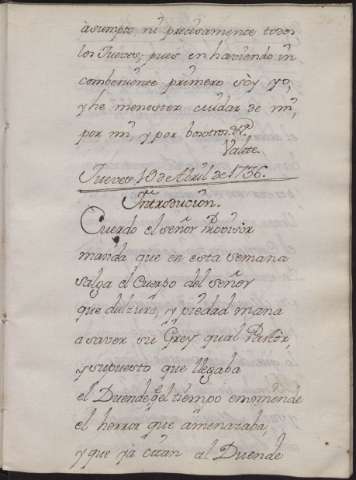 asumpto, ni precisamente todos
los Jueves, pues en haviendo in
combeniente primero soy yo,
y he menester cuidar de mi,
por mi, y por bosotros. &ª
Valete.
Jueves 19 de Abril de 1736.
Introducion.
Quando el señor Provisor
manda que en esta semana
salga el Cuerpo del señor
que dulzura, y piedad mana
a saver sie Grey qual Pastor,
y supuesto que llegaba
el Duende, el tiempo enmiende
el horror que amenazaba,
y que ya citan al Duende